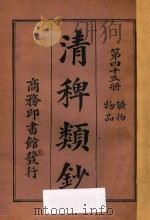 第四十五册
礦物
物品
清稗類鈔
商務印書館發行